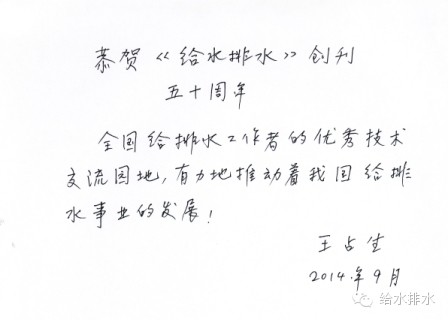 恭贺《给水排水》创刊
五十周年
全国给排水工作者的优秀技术
交流园地,有力地推动着我国给排
水事业的发展!
王占生
2014.年9月
给水排水